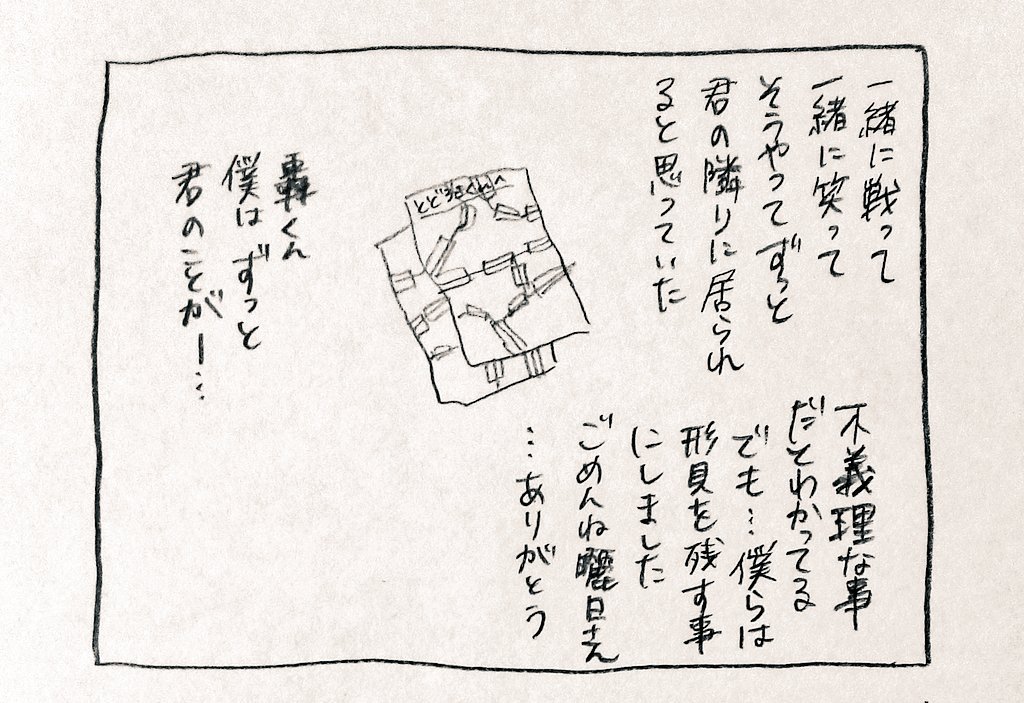 一緒に戦って
一緒に笑って
そうやってずっと
君の隣りに居られ
ると思っていた
不義理な事
だとわかってる
でも…僕らは
形見を残す事
にしました
ごめんね曬日さん
…ありがとう
とどろきくんへ
轟くん
僕はずっと
君のことがー…